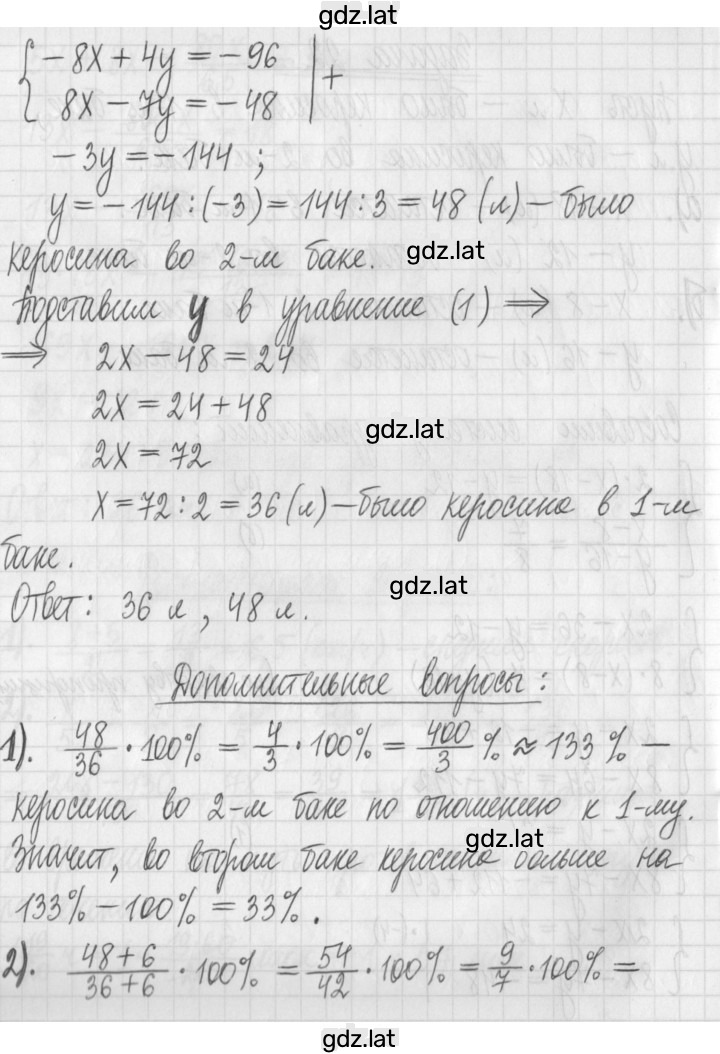 gdz.lat
{ -8x + 4y = -96 | +
8x - 7y = -48
-3y = -144 ;
y = -144 : (-3) = 144 : 3 = 48 (л) - было
керосина во 2-м баке. gdz.lat
Подставим y в уравнение (1) ⟹
⟹ 2x - 48 = 24
2x = 24 + 48
gdz.lat
2x = 72
x = 72 : 2 = 36 (л) - было керосина в 1-м
баке.
gdz.lat
Ответ: 36 л, 48 л.
Дополнительные вопросы:
1). 48/36 · 100% = 4/3 · 100% = 400/3 % ≈ 133% -
керосина во 2-м баке по отношению к 1-му.
gdz.lat
Значит, во втором баке керосина больше на
133% - 100% = 33%.
2). 48+6/36+6 · 100% = 54/42 · 100% = 9/7 · 100% =
gdz.lat